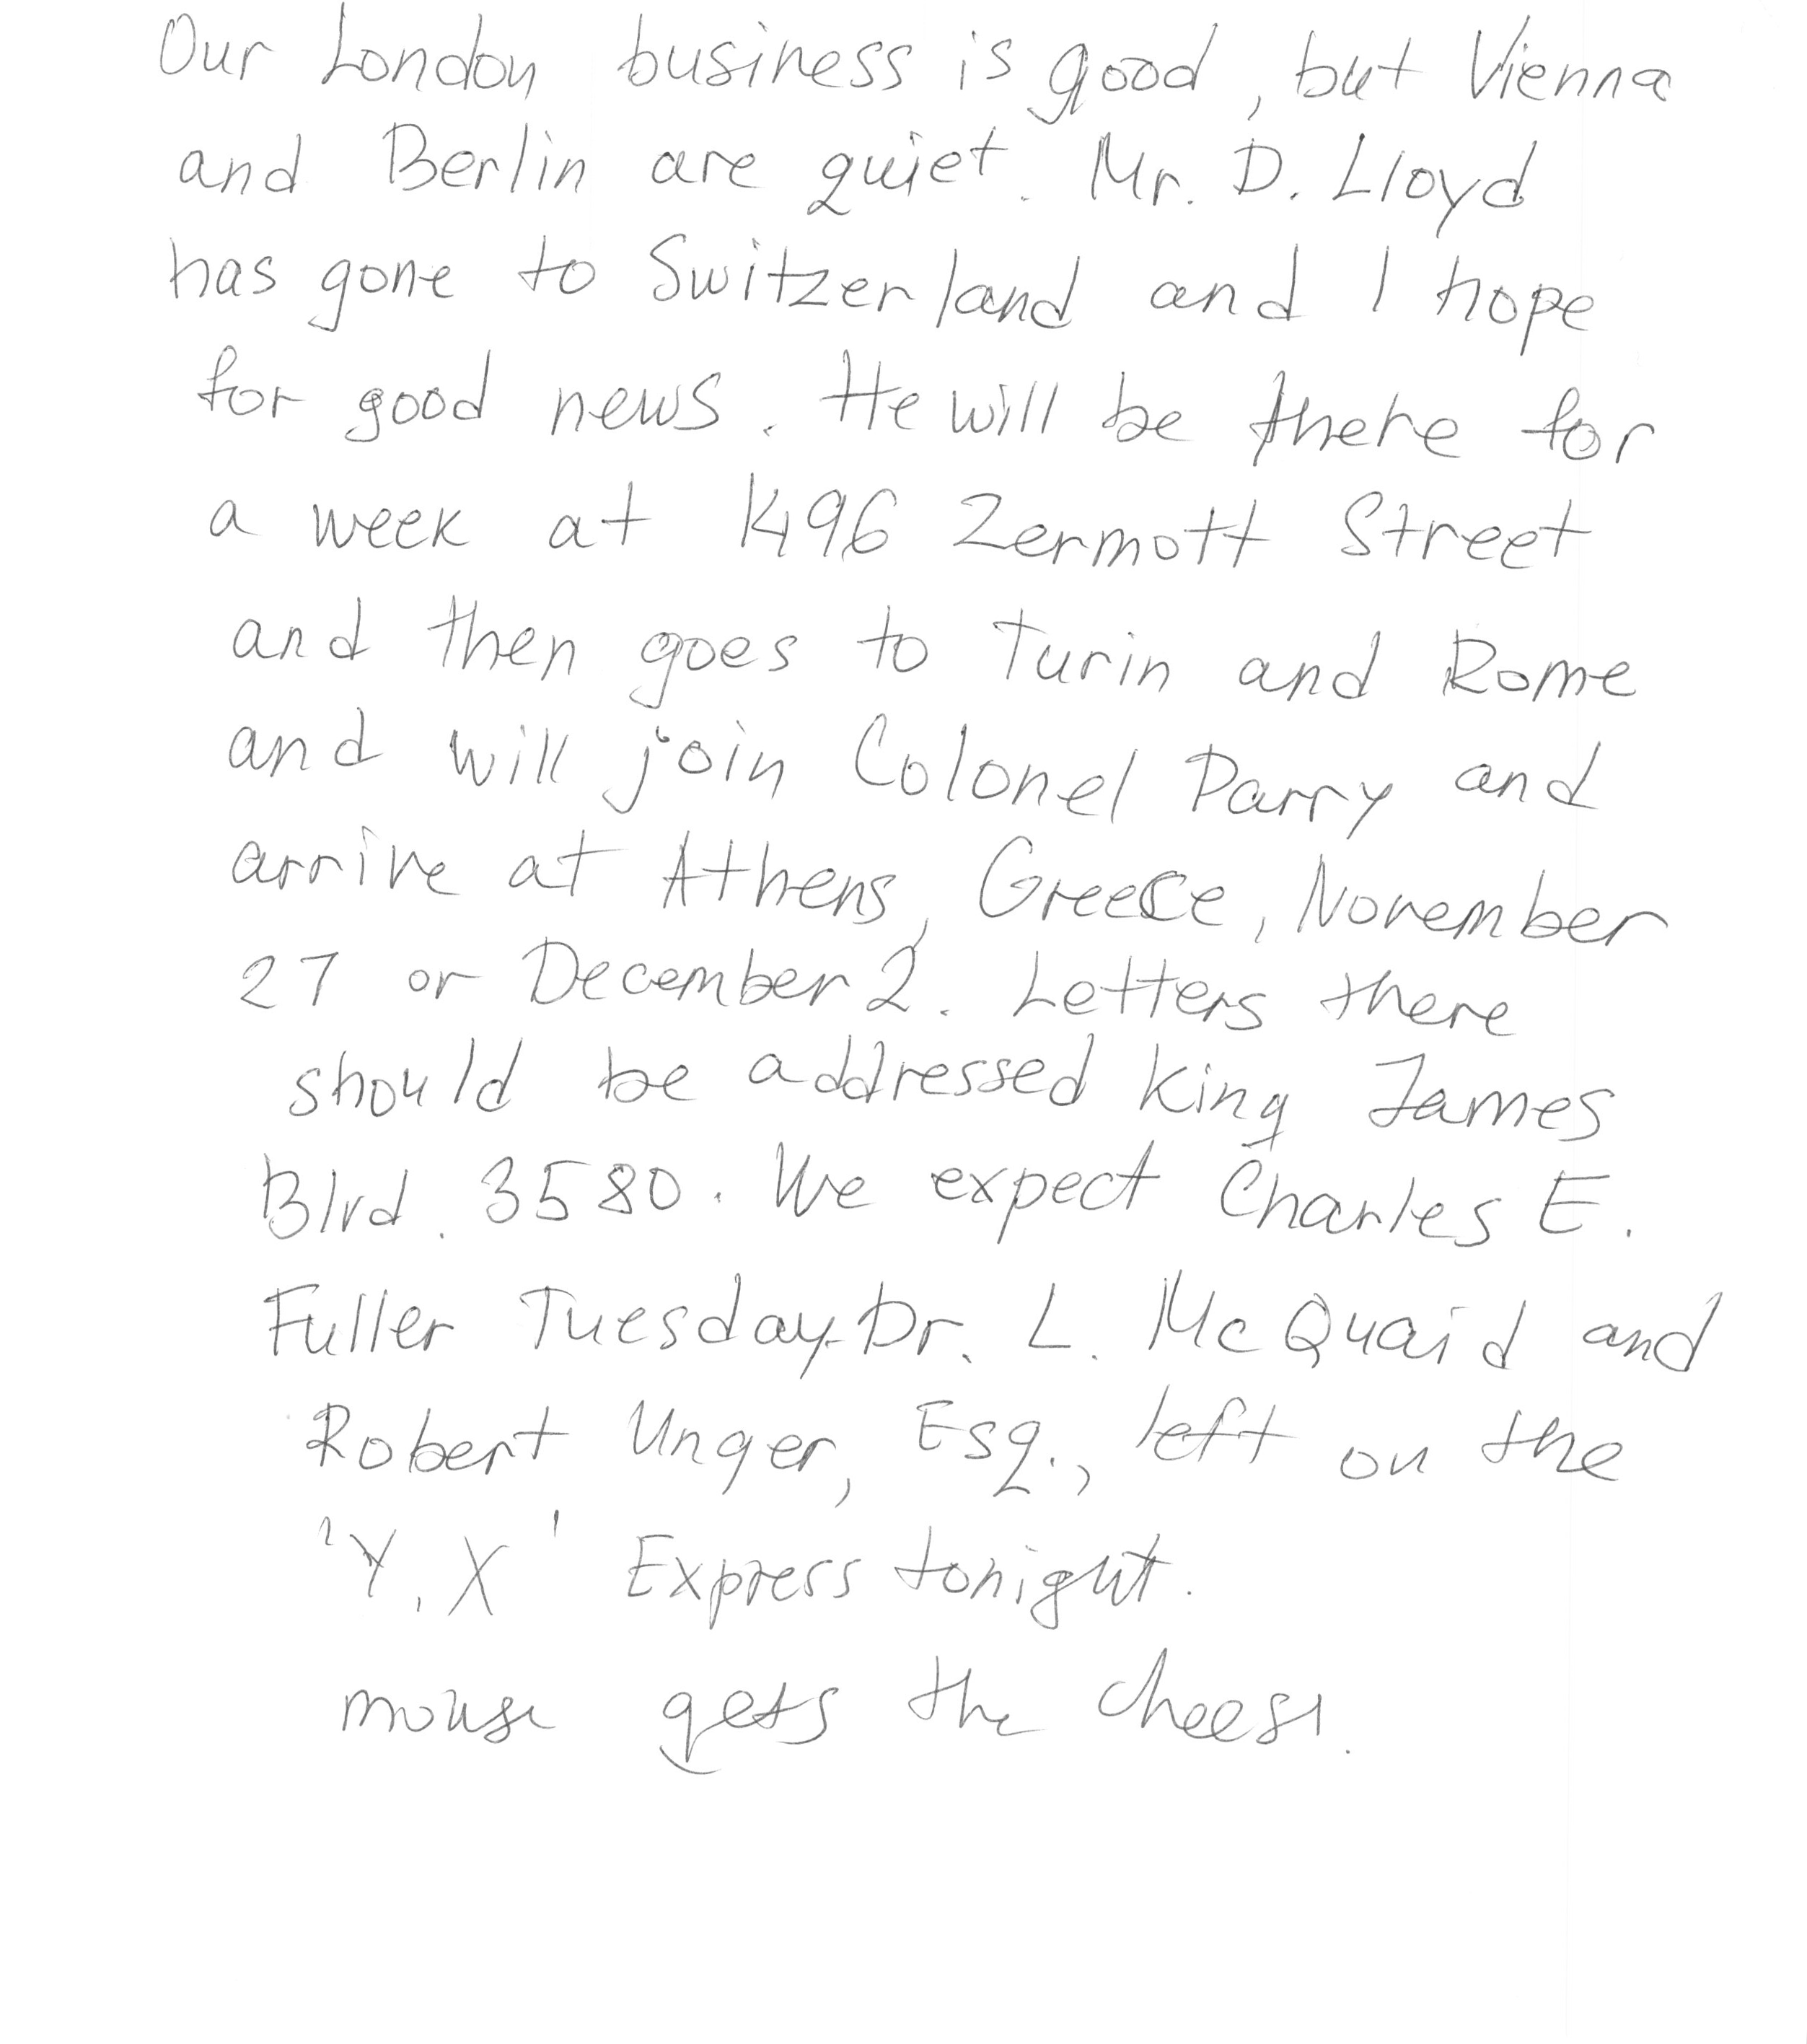 Our London business is good, but Vienna
and Berlin are quiet. Mr. D. Lloyd
has gone to Switzerland and I hope
for good news. He will be there for
a week at 1496 Zermott Street
and then goes to Turin and Rome
and will join Colonel Parry and
arrive at Athens, Greece, November
27 or December 2. Letters there
should be addressed King James
Blvd. 3580. We expect Charles E.
Fuller Tuesday. Dr. L. McQuaid and
Robert Unger, Esq., left on the
'Y, X' Express tonight.
mouse gets the cheese.